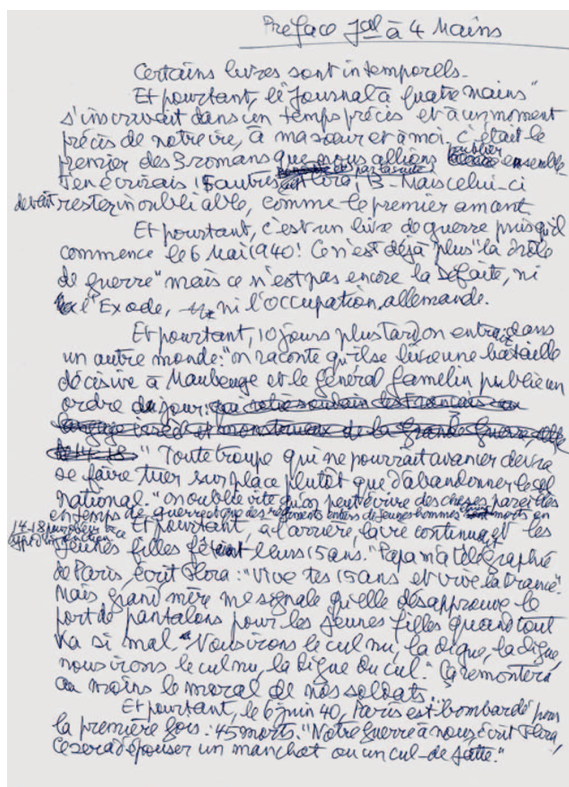 Préface Jal à 4 Mains
Certains livres sont intemporels.
Et pourtant, le "Journal à Quatre mains"
s'inscrivait dans un temps précis et à un moment
précis de notre vie, à ma sœur et à moi. c'était le
premier des 3 romans que nous allions publier ensemble
J'en écrirais
devait rester inoubliable, comme le premier amant
Et pourtant, c'est un livre de guerre puisqu'il
commence le 6 Mai 1940! Ce n'est déjà plus "la drôle
de guerre" mais ce n'est pas encore la défaite, ni
l'Exode, ni l'occupation allemande.
Et pourtant, 10 jours plus tard on entrait dans
un autre monde: "on raconte qu'il se livre une bataille
décisive à Maubeuge et le général Gamelin publie un
ordre du jour: que
"Toute troupe qui ne pourrait avancer devra
se faire tuer sur place plutôt que d'abandonner le sol
national." on oublie vite qu'on peut écrire des choses pareilles
en temps de guerre et que des régiments entiers de jeunes hommes sont morts en
14-18 pour
Et pourtant à l'arrière, la vie continue et les
jeunes filles fêtent leurs 15 ans. "Papa m'a télégraphié
de Paris, écrit Flora: "Vive tes 15 ans et vive la France".
Mais grand mère me signale qu'elle désapprouve le
port de pantalons pour les jeunes filles quand tout
va si mal. "Nous irons le cul nu, la digue, la digue,
nous irons le cul nu, la digue du cul." Ça remontera
au moins le moral de nos soldats.
Et pourtant, le 6 juin 40, Paris est bombardé pour
la première fois: 45 morts. "Notre guerre à nous, écrit Flora,
ce sera d'épouser un manchot ou un cul-de-jatte."